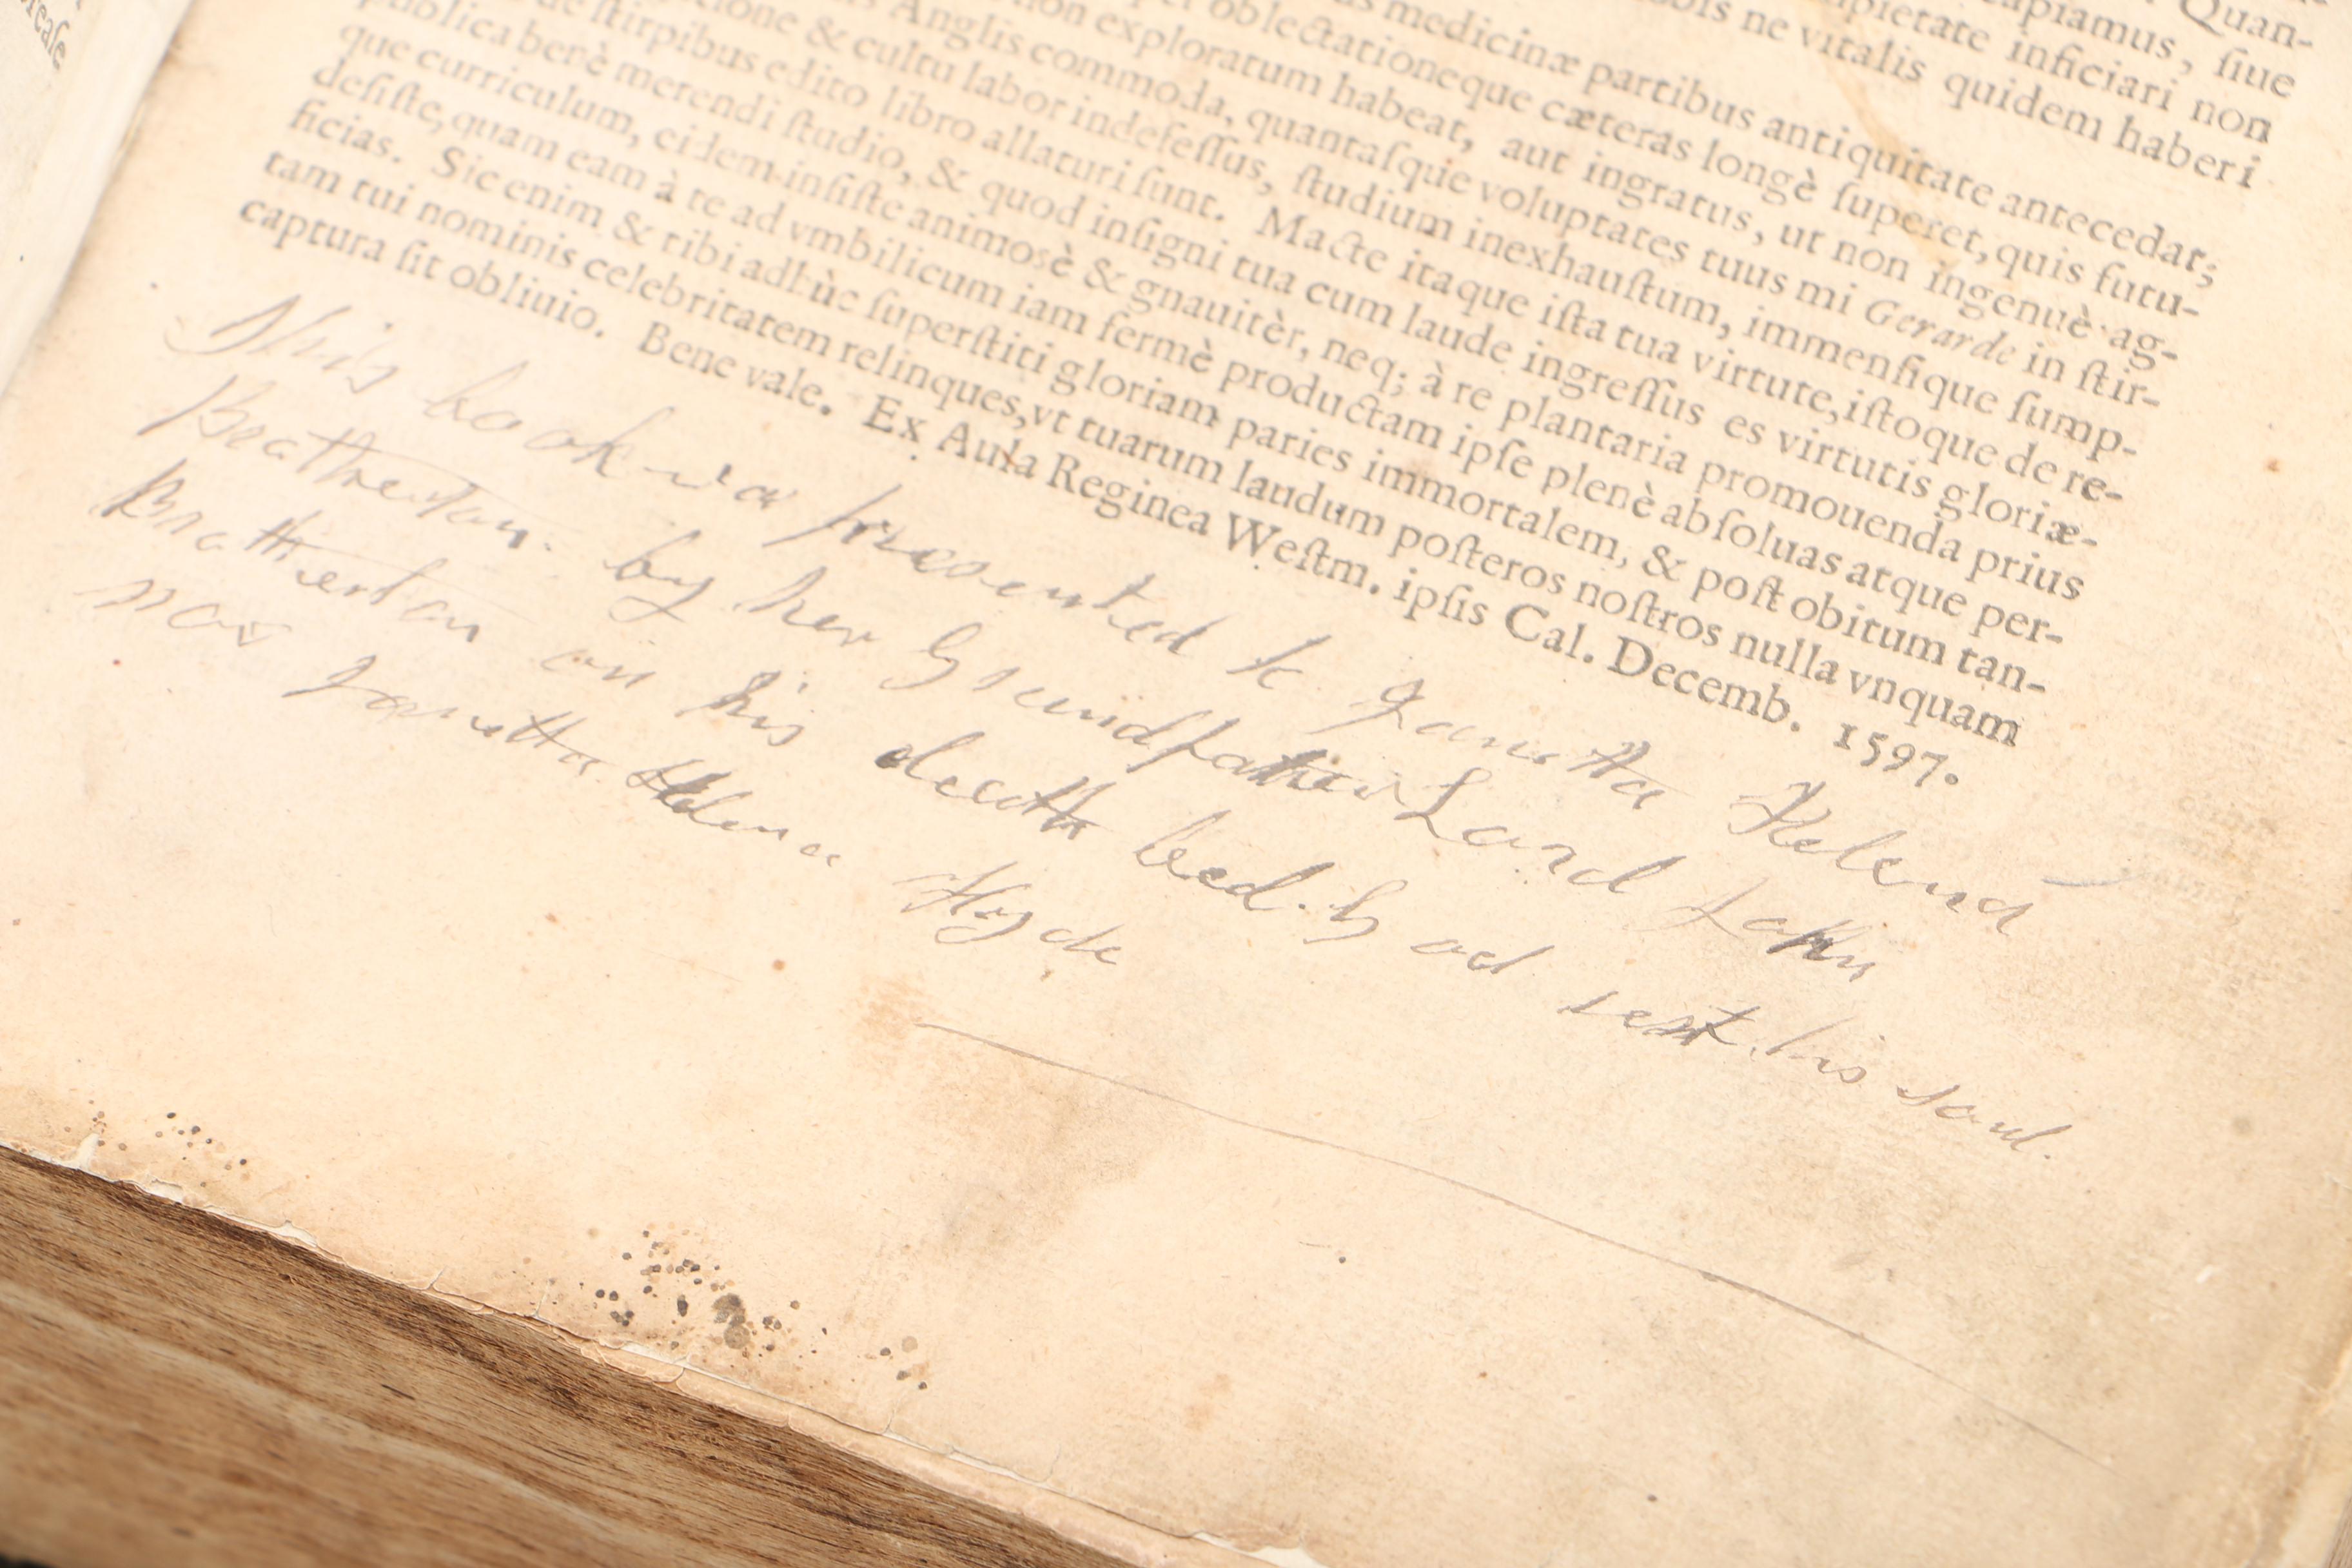 reaſe
Quan-
capiamus, ſiue
impietate inficiari non
nobis ne vitalis quidem haberi
medicinæ partibus antiquitate antecedat;
oblectationeque cæteras longè ſuperet, quis futu-
non exploratum habeat, aut ingratus, ut non ingenuè ag-
Anglis commoda, quantaſque voluptates tuus mi Gerarde in ſtir-
& cultu labor indefeſſus, ſtudium inexhauſtum, immenſique ſump-
de ſtirpibus edito libro allaturi ſunt. Macte itaque iſta tua virtute, iſtoque de re-
publica benè merendi ſtudio, & quod inſigni tua cum laude ingreſſus es virtutis gloriæ-
que curriculum, eidem inſiſte animosè & gnauitèr, neq; à re plantaria promouenda prius
deſiſte, quam eam à te ad vmbilicum iam fermè productam ipſe plenè abſoluas atque per-
ficias. Sic enim & tibi adhùc ſuperſtiti gloriam paries immortalem, & poſt obitum tan-
tam tui nominis celebritatem relinques, vt tuarum laudum poſteros noſtros nulla vnquam
captura ſit obliuio. Bene vale. Ex Aula Reginea Weſtm. ipſis Cal. Decemb. 1597.
This book was presented to Janetta Helena
Brathertan. by her Grandfather Lord John
Brathertan on his death bed. God rest his soul.
nos Janetta Helena Hyde